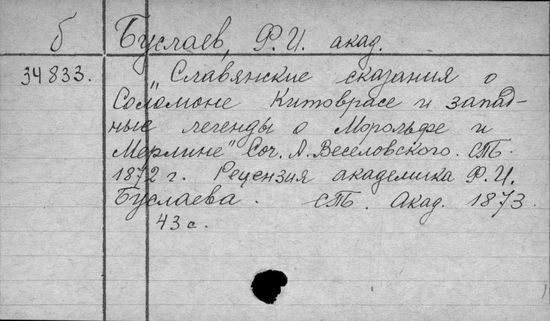 б Буслаев, Ф.И. акад.
34833. „Славянские сказания о
Соломоне Китоврасе и запад-
ные легенды о Морольфе и
Мерлине" Соч. А. Веселовского. СПб.
1872 г. Рецензия академика Ф.И.
Буслаева. СПб. Акад. 1873.
43 с.